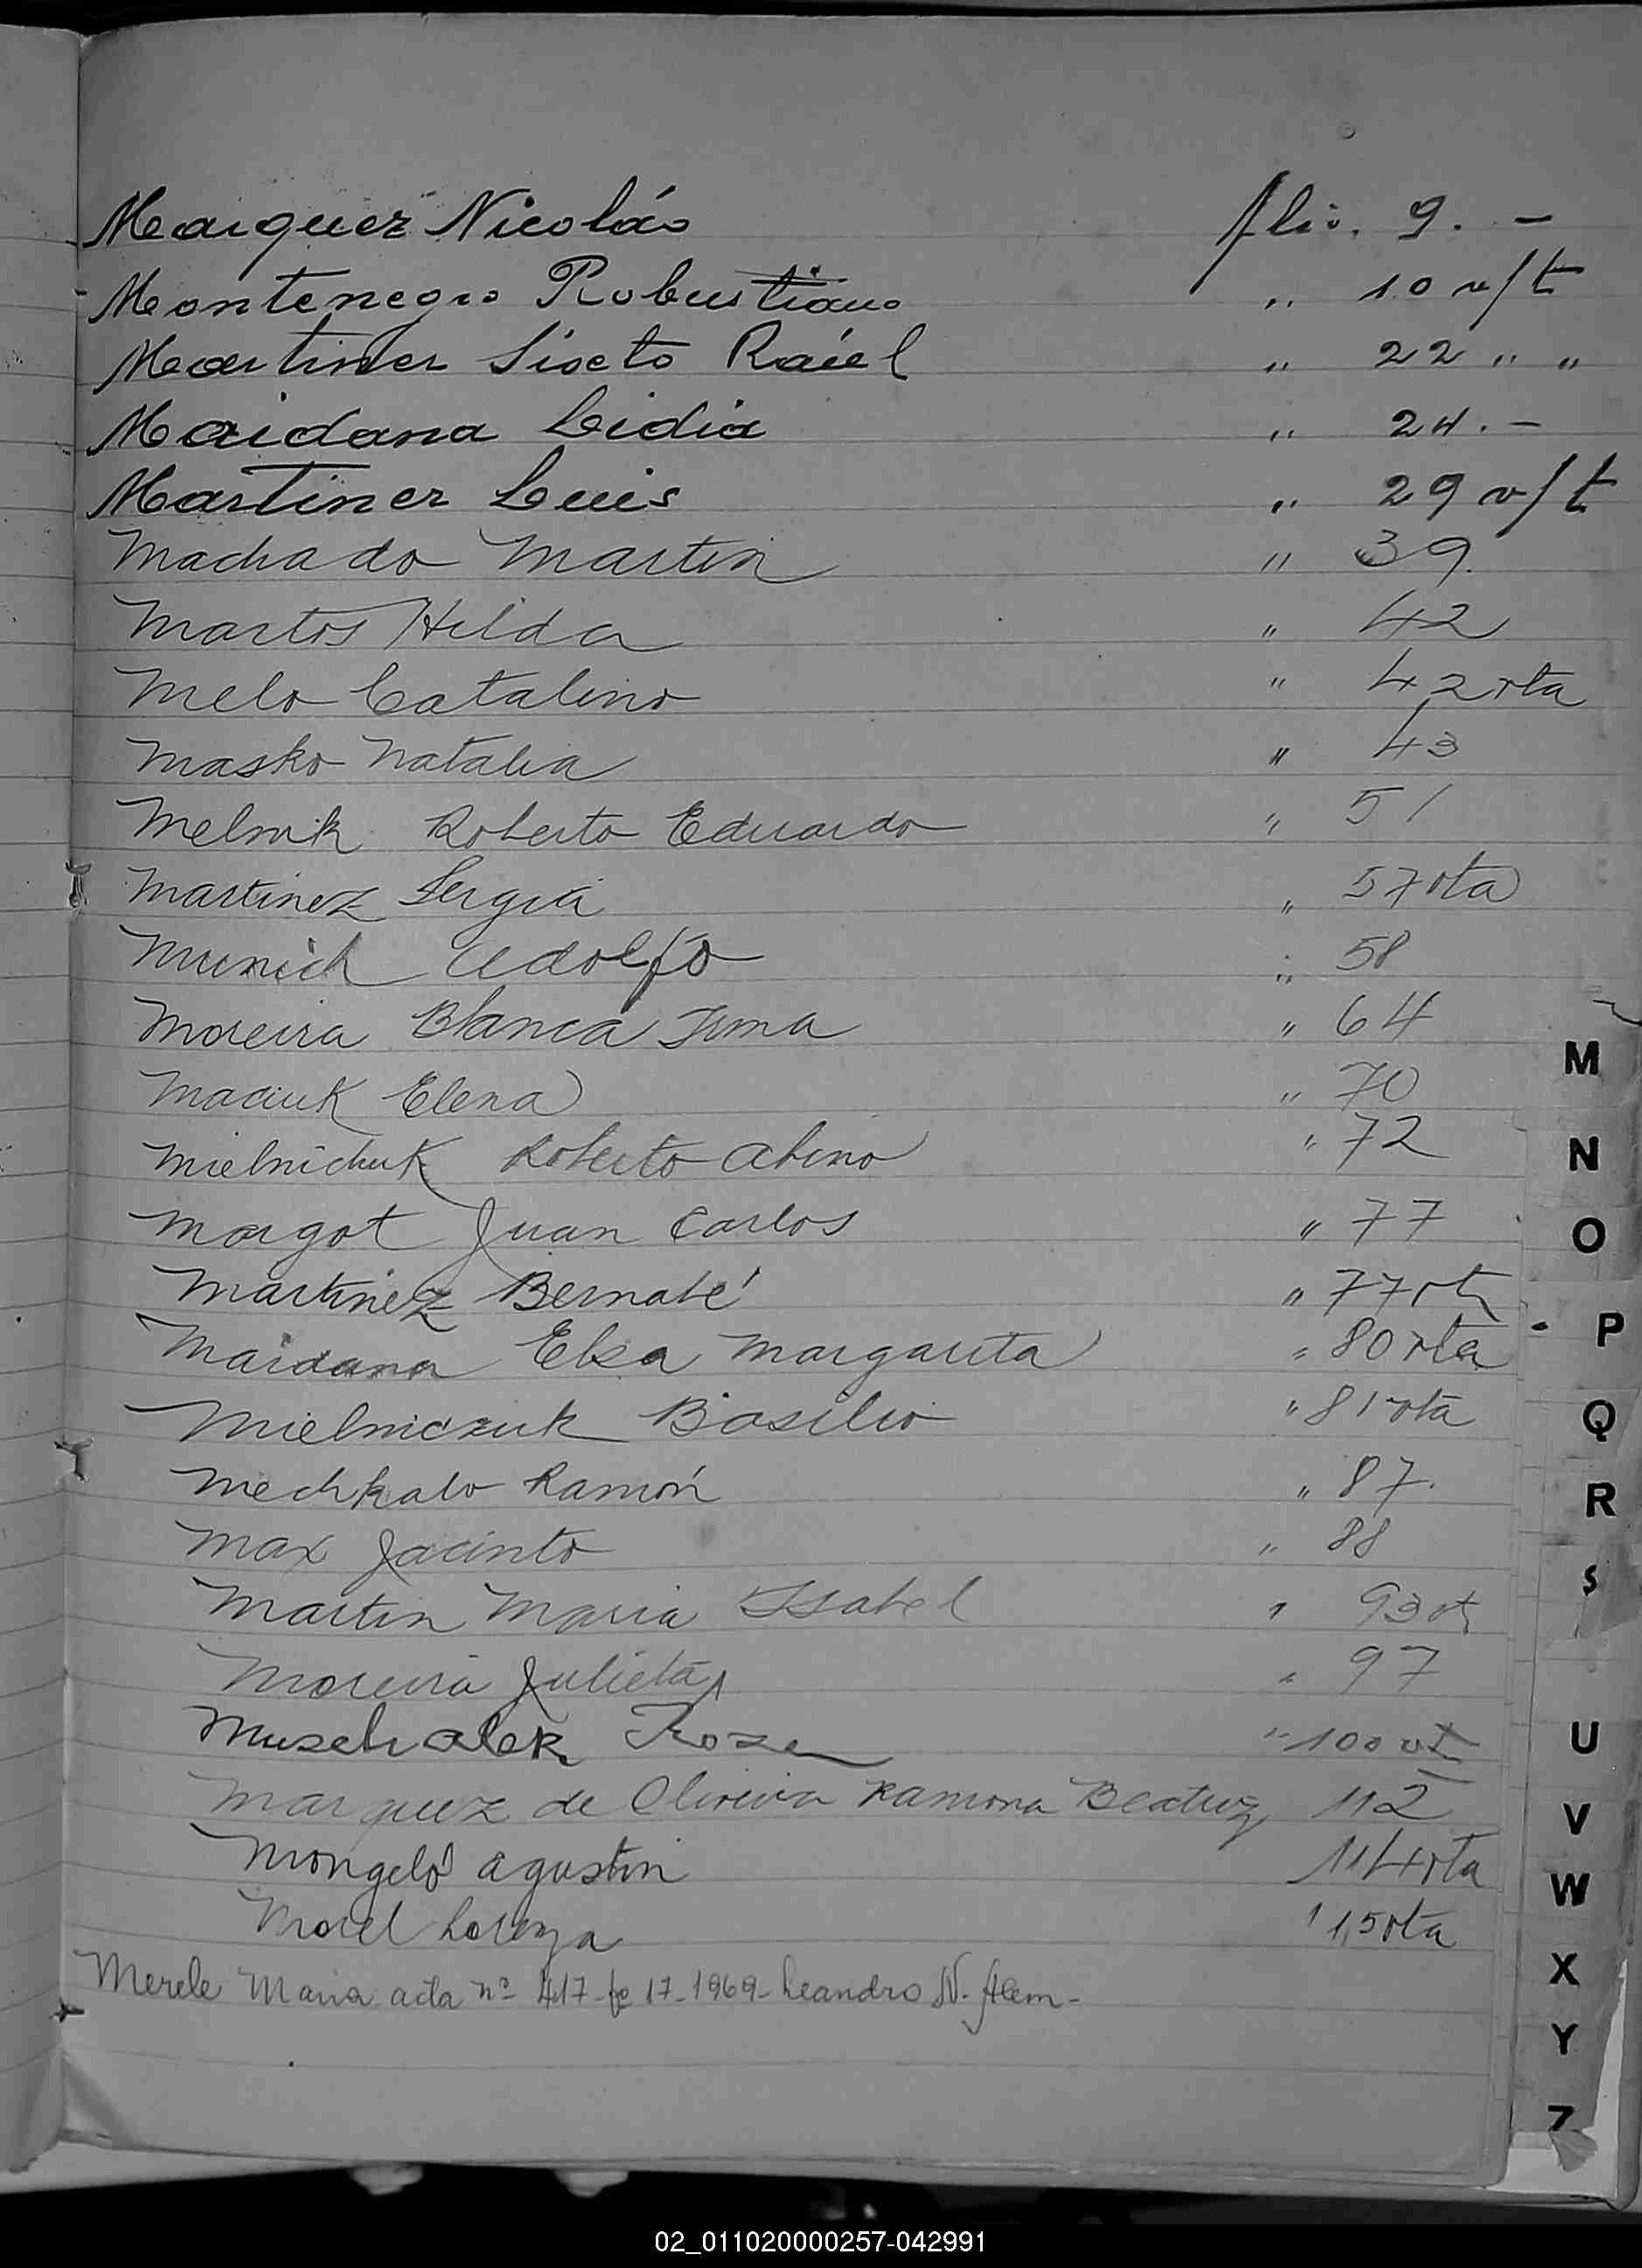 Marquez Nicolás flio. 9. -
Montenegro Robustiano " 10 v/t
Martinez Sixto Raúl " 22 " "
Maidana Lidia " 24. -
Martinez Luis " 29 v/t
Machado Martin " 39.
Martos Hilda " 42
Melo Catalino " 42 vta
Masko Natalia " 43
Melnik Roberto Eduardo " 51
Martinez Sergia " 57 vta
Munich Adolfo " 58
Moreira Blanca Irma " 64
Maciuk Elena " 70
Mielnichuk Roberto Albino " 72
Margot Juan Carlos " 77
Martinez Bernabé " 77 vt
Maidana Elsa Margarita " 80 vta
Mielniczuk Basilio " 81 vta
Mechkalo Ramón " 87.
Max Jacinto " 88
Martin Maria Isabel " 93 vt
Moreira Julieta " 97
Muschalek Rosa " 100 vt
Marquez de Oliveira Ramona Beatriz 112
Mongeló Agustin 114 vta
Morel Lorenza 115 vta
Merele Maria acta nº 417 fº 17 - 1969 - Leandro N. Alem -
M
N
O
P
Q
R
S
U
V
W
X
Y
Z
02_011020000257-042991